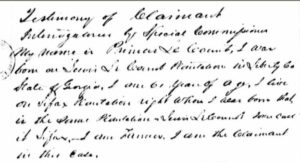 Testimony of Claimant
Interrogatories by Special Commissioner
My name is Prince Le Counts, I was
born on Lewis Le Counts Plantation in Liberty Co
State of Georgia, I am 61 years of age, I live
on Plantation right where I was born that
is the same Plantation Lewis LeCounts some call
it I am Farmer, I am the Claimant
in this Case.